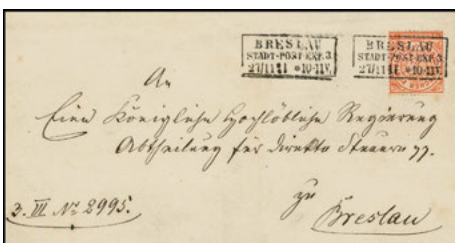 BRESLAU
STADT-POST-EXP. 3.
27/11 71 *10-11V.
BRESLAU
STADT-POST-EXP. 3
27/11 71 *10-11V.
An
Eine Königliche Hochlöbliche Regierung
Abtheilung für direkte Steuern pp.
zu
Breslau
3. III No 2995.